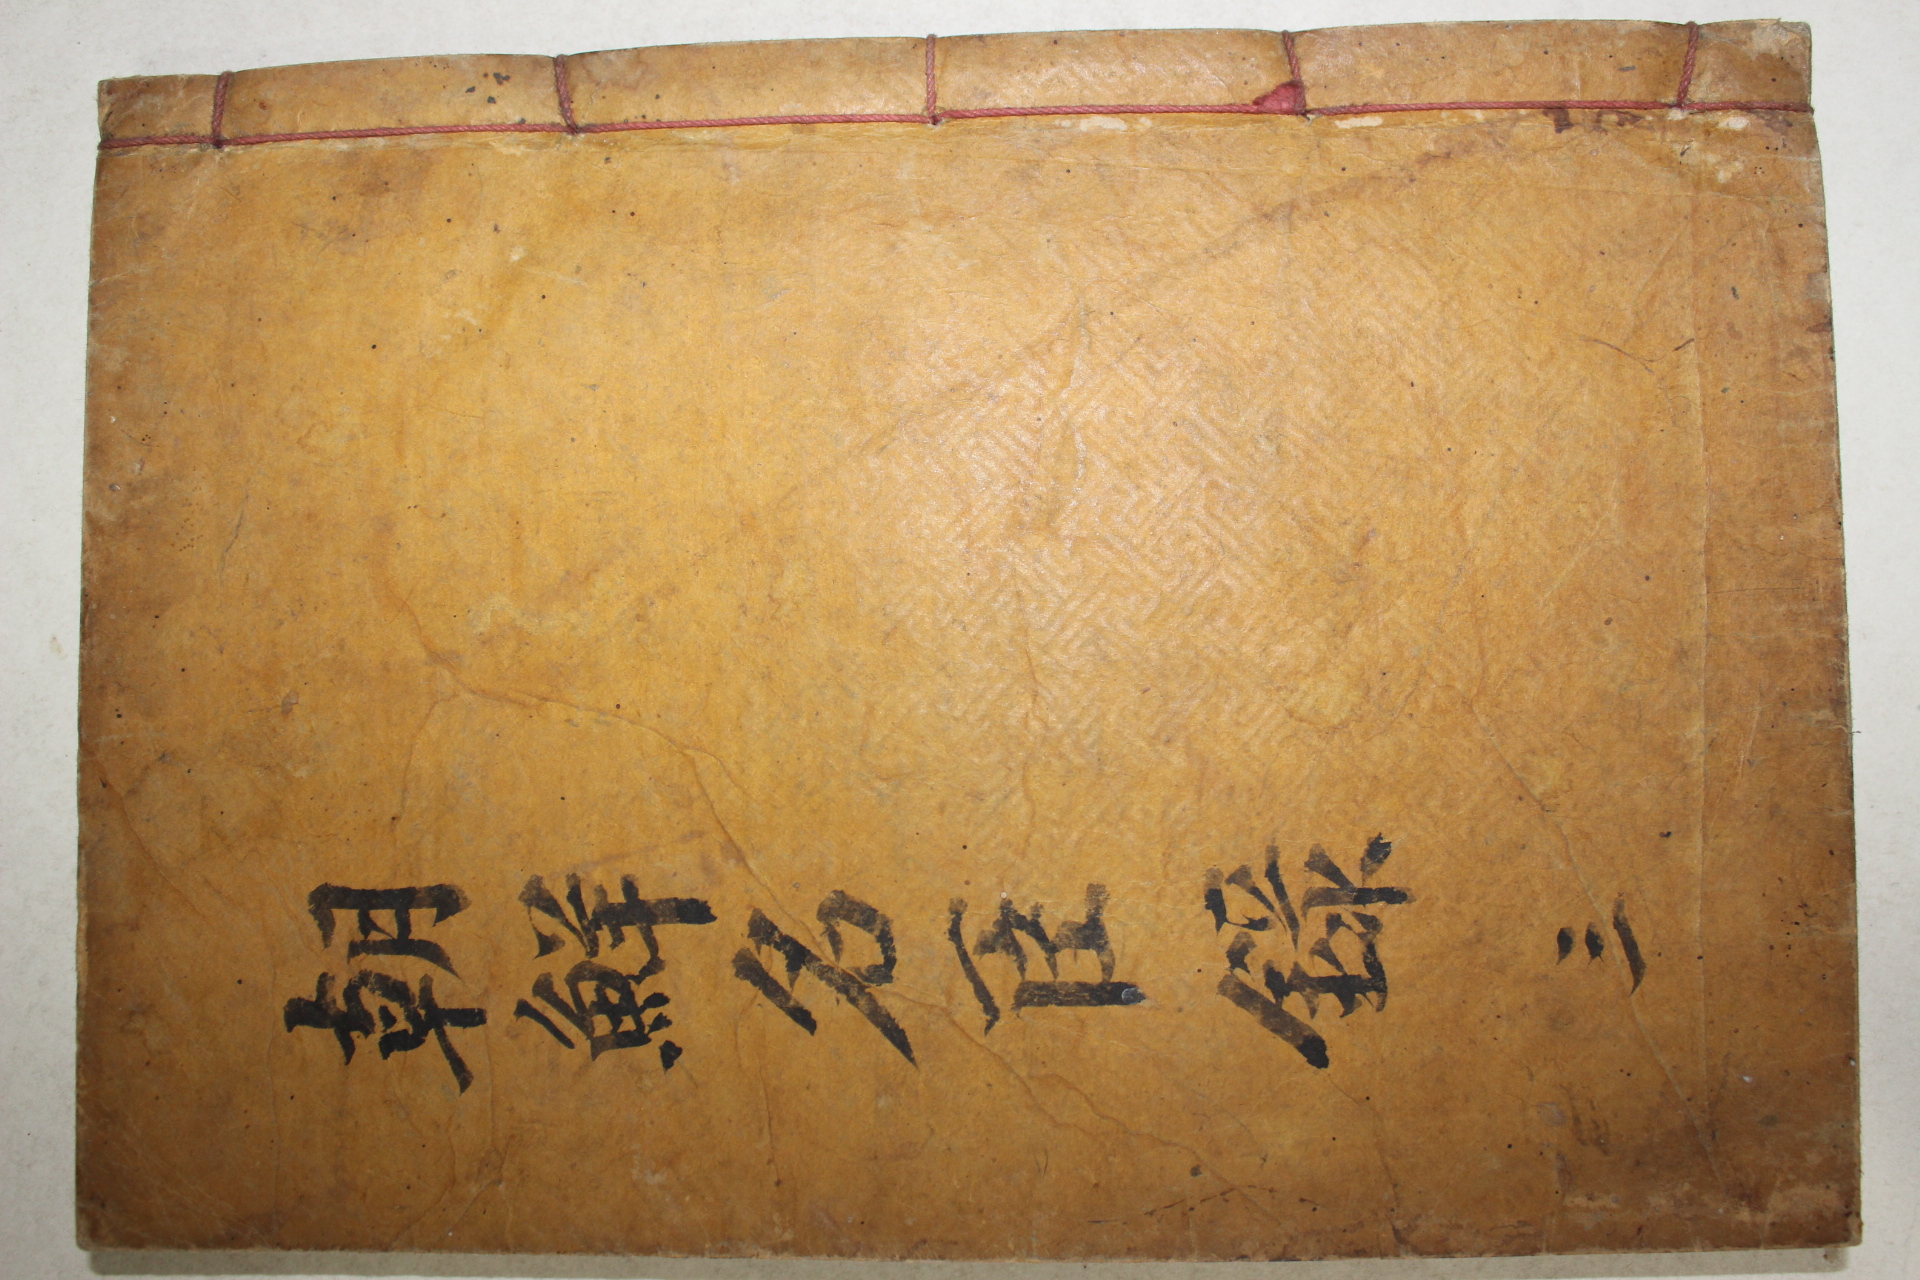 朝鮮名臣錄 三